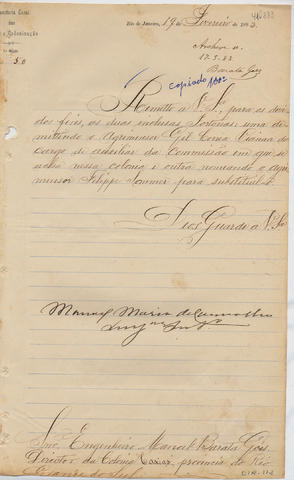 Rio de Janeiro, 19 de Fevereiro de 1883.
Archive-se.
17.3.83
Barata Góes
copiado
Remetto a V. S. para os devi-
dos fins, as duas inclusas Portarias: uma de-
mittindo o Agrimensor Gil Correa Vianna do
cargo de auxiliar da Commissão em que se
acha nessa colonia e outra nomeando o agri-
mensor Filippe Sommer para substituil-o.
Deos Guarde a V. Sª
Manoel Maria de Carvalho
Snr. Engenheiro Manoel Barata Góes,
Director da Colonia Caxias, provincia do Rio
Grande do Sul.